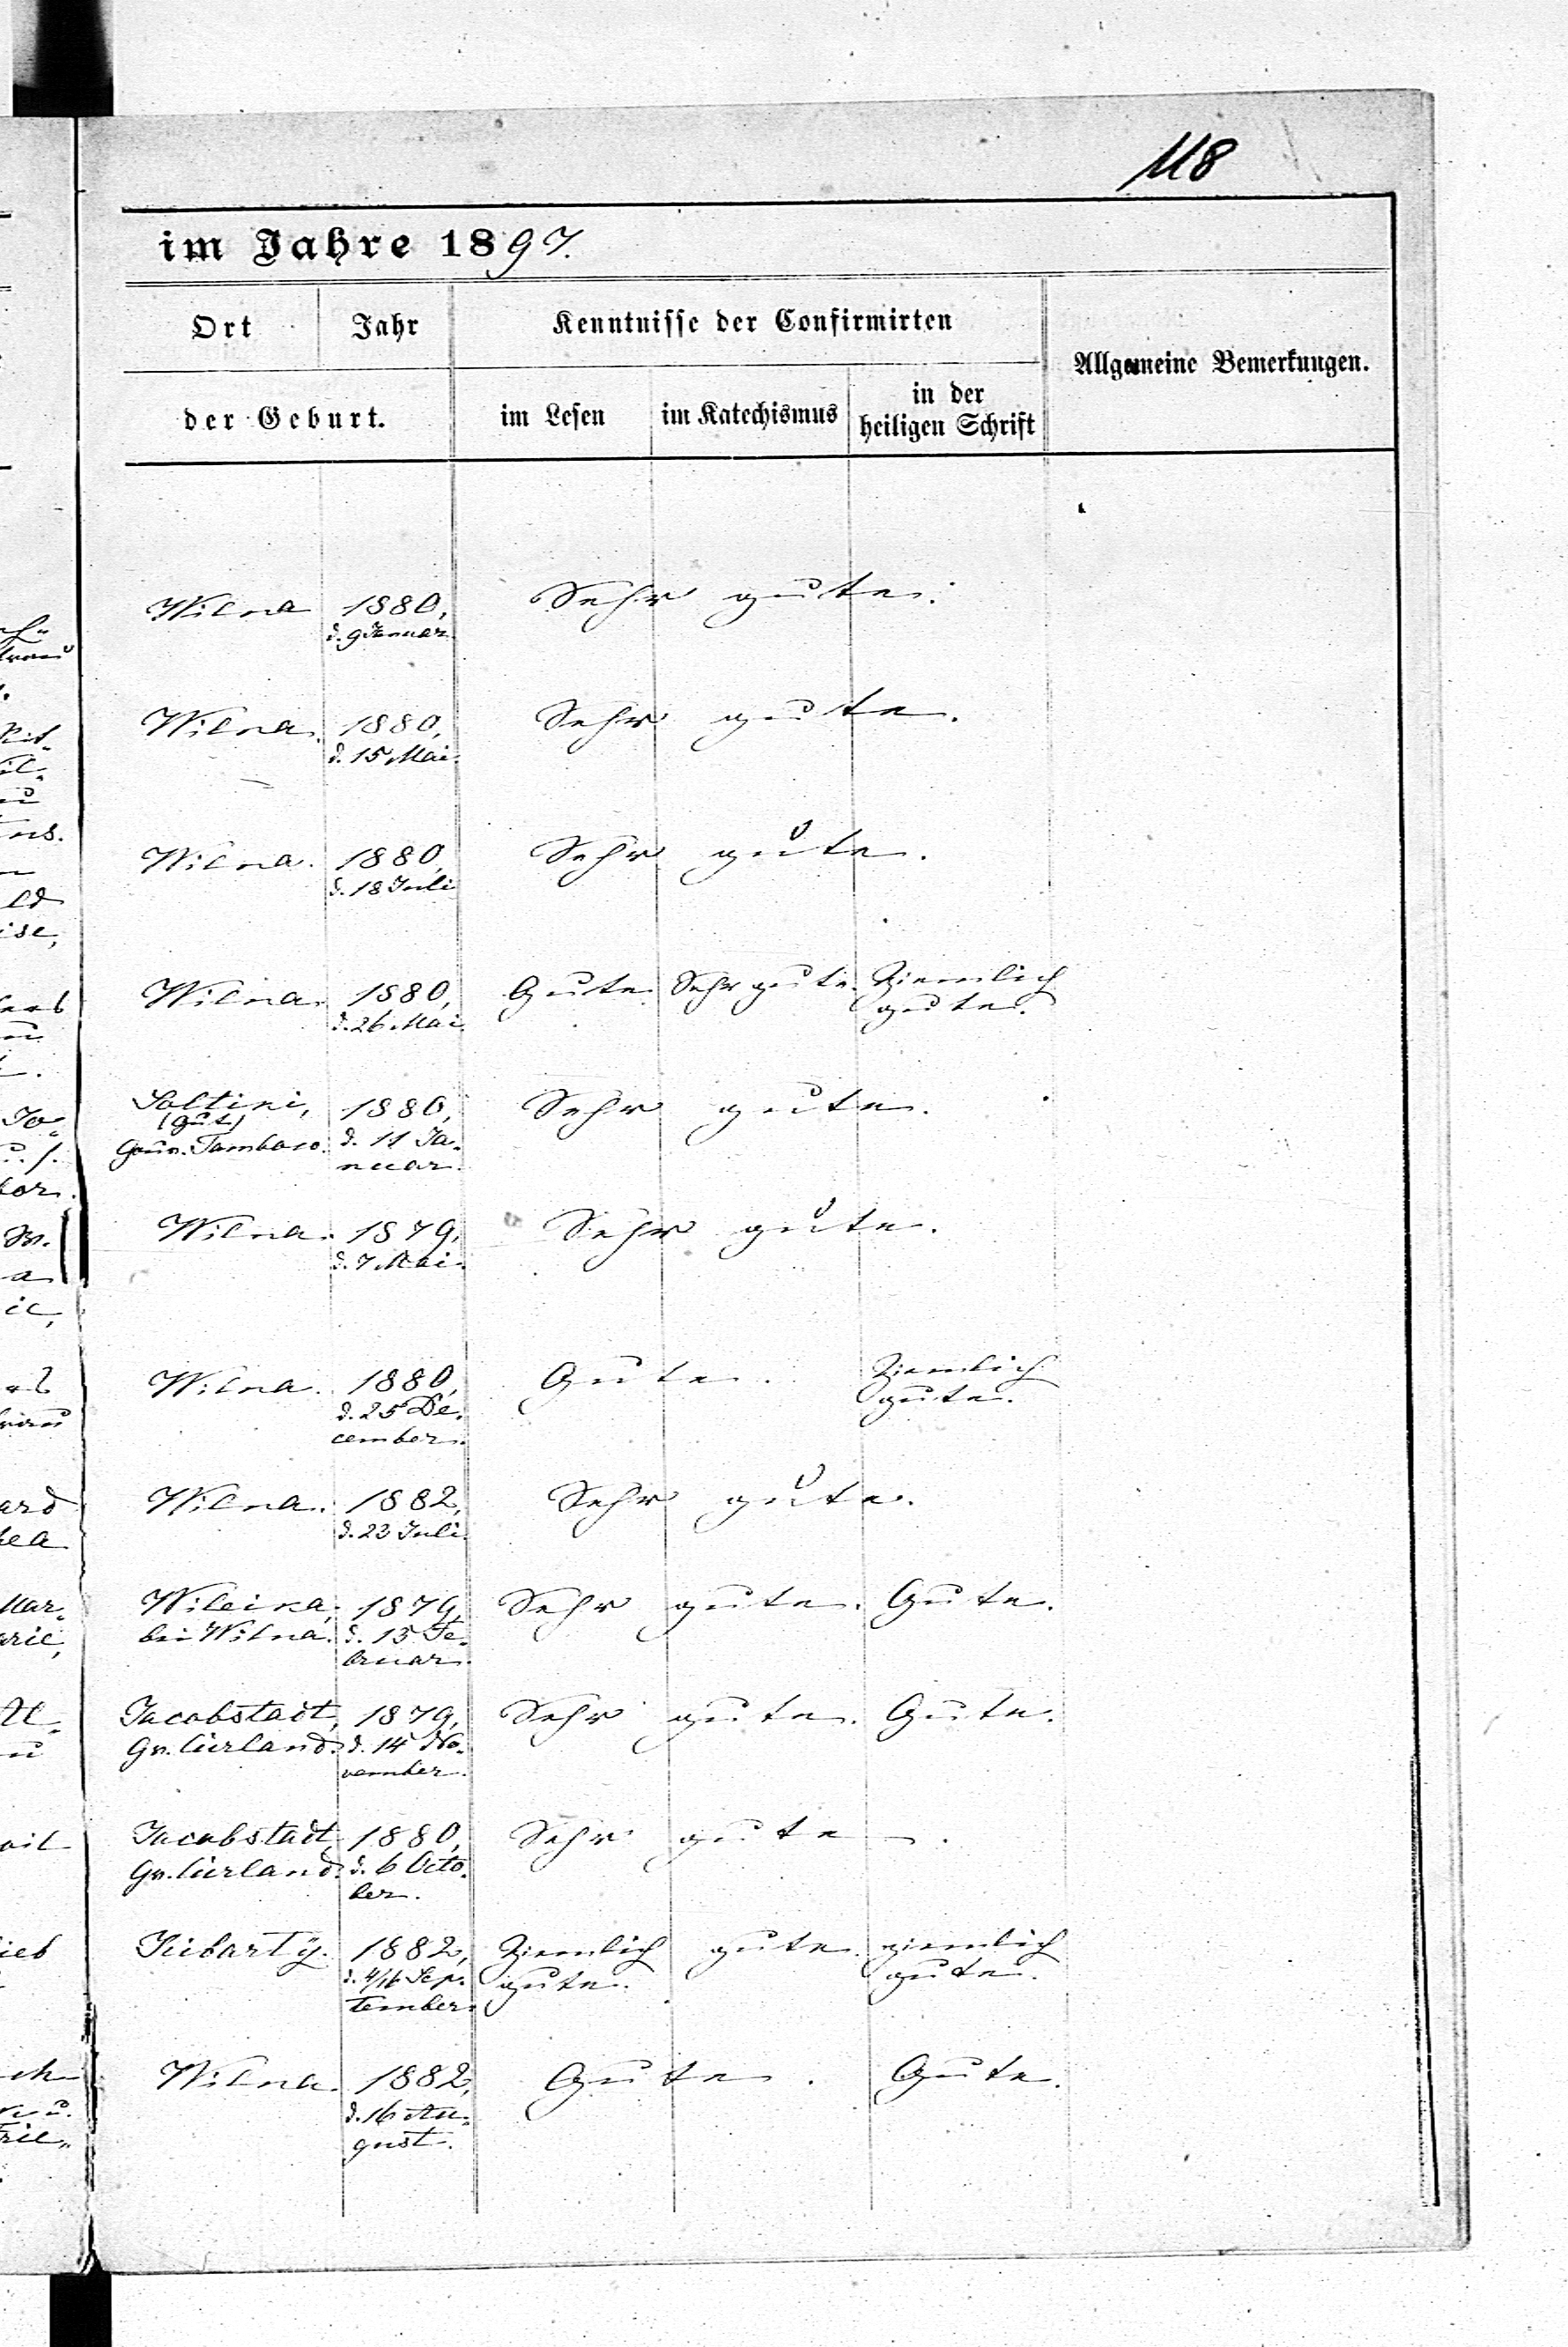 118
im Jahre 1897.
Ort Jahr Kenntnisse der Confirmirten Allgemeine Bemerkungen.
der Geburt. im Lesen im Katechismus in der
heiligen Schrift
Wilna 1880, Sehr gute.
d. 9 Januar.
Wilna. 1880, Sehr gute.
d. 15 Mai.
Wilna. 1880, Sehr gute.
d. 18 Juli
Wilna. 1880, Gute. Sehr gute. Ziemlich
d. 26 Mai. gute.
Soltini, 1880, Sehr gute.
(Gut)
Gouv. Tambow. d. 11 Ja-
nuar.
Wilna. 1879, Sehr gute.
d. 7 Mai.
Wilna. 1880, Gute. Ziemlich
d. 25 De- gute.
cember.
Wilna. 1882, Sehr gute.
d. 23 Juli.
Wileika, 1879, Sehr gute. Gute.
bei Wilna. d. 13 Fe-
bruar.
Jacobstadt, 1879, Sehr gute. Gute.
Gv. Curland. d. 14 No-
vember.
Jacobstadt, 1880, Sehr gute.
Gv. Curland. d. 6 Octo-
ber.
Kibarty. 1882, Ziemlich gute. ziemlich
d. 4/16 Sep- gute. gute.
tember.
Wilna. 1882, Gute. Gute.
d. 16 Au-
gust.